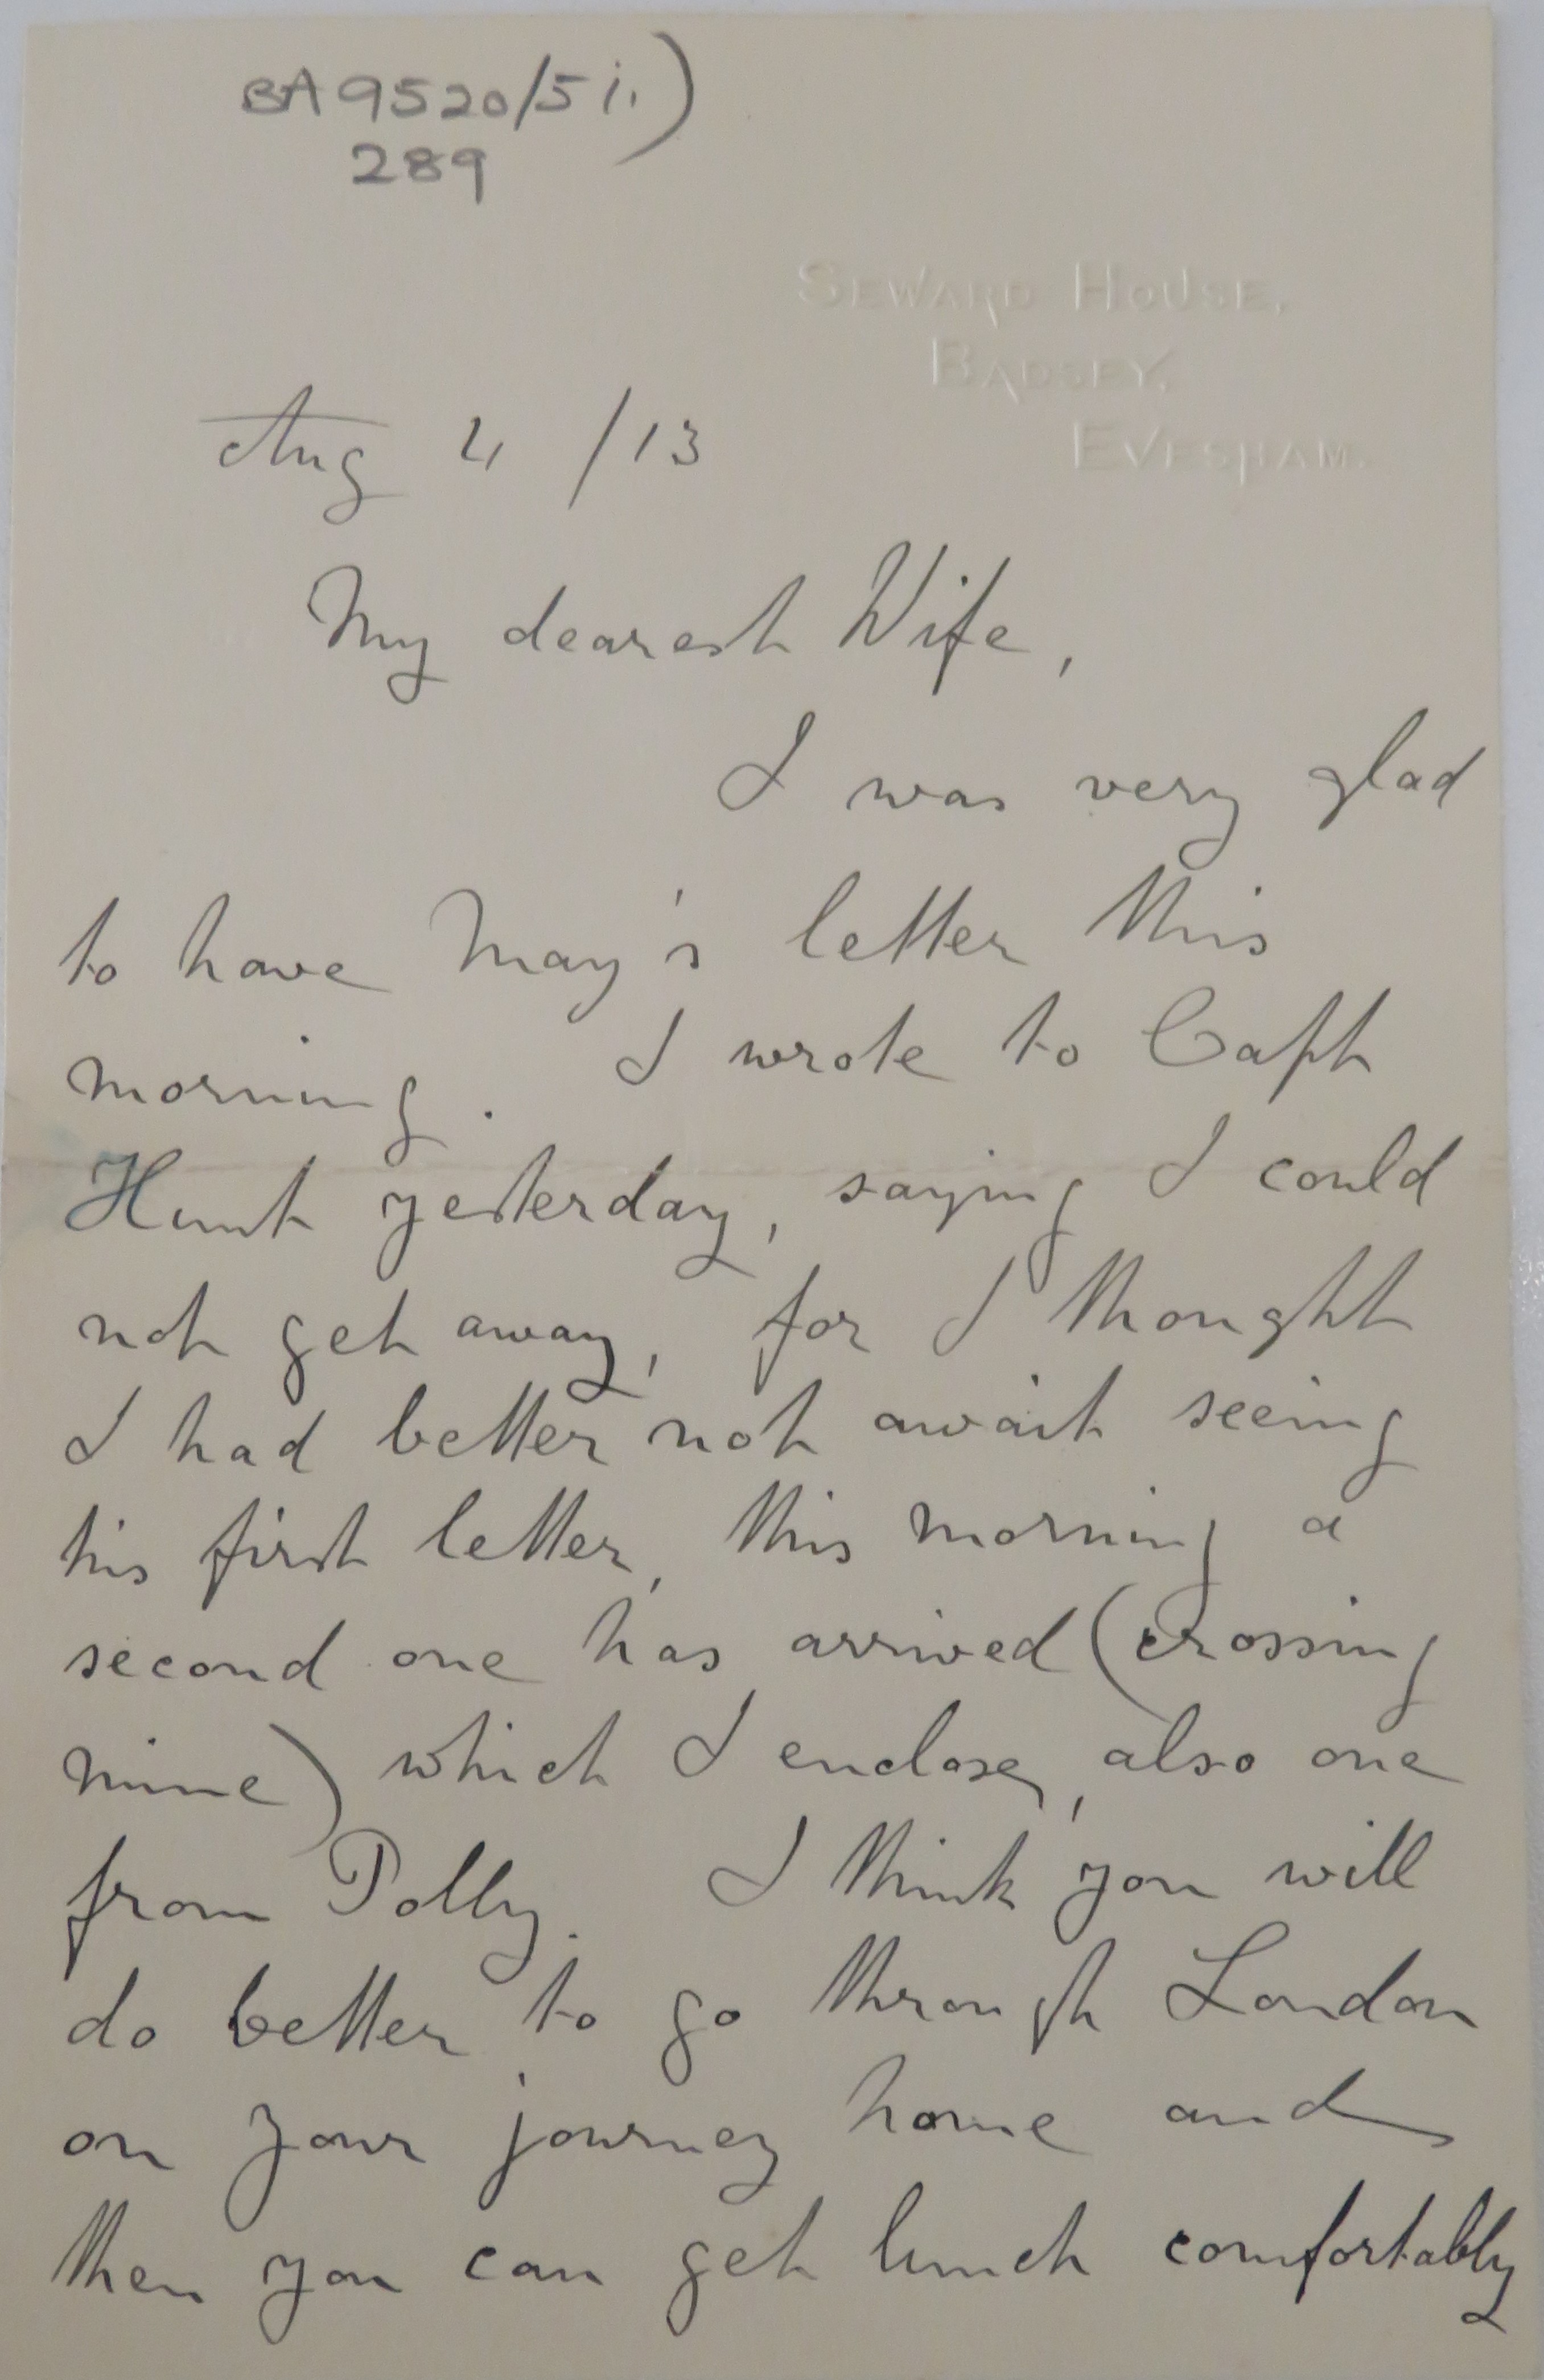 BA 9520/5 i.)
289
SEWARD HOUSE,
BADSEY,
EVESHAM.
Aug 4 /13
My dearest Wife,
I was very glad
to have May's letter this
morning. I wrote to Capt
Hunt yesterday, saying I could
not get away, for I thought
I had better not await seeing
his first letter, this morning a
second one has arrived (crossing
mine) which I enclose, also one
from Polly. I think you will
do better to go through London
on your journey home and
then you can get lunch comfortably